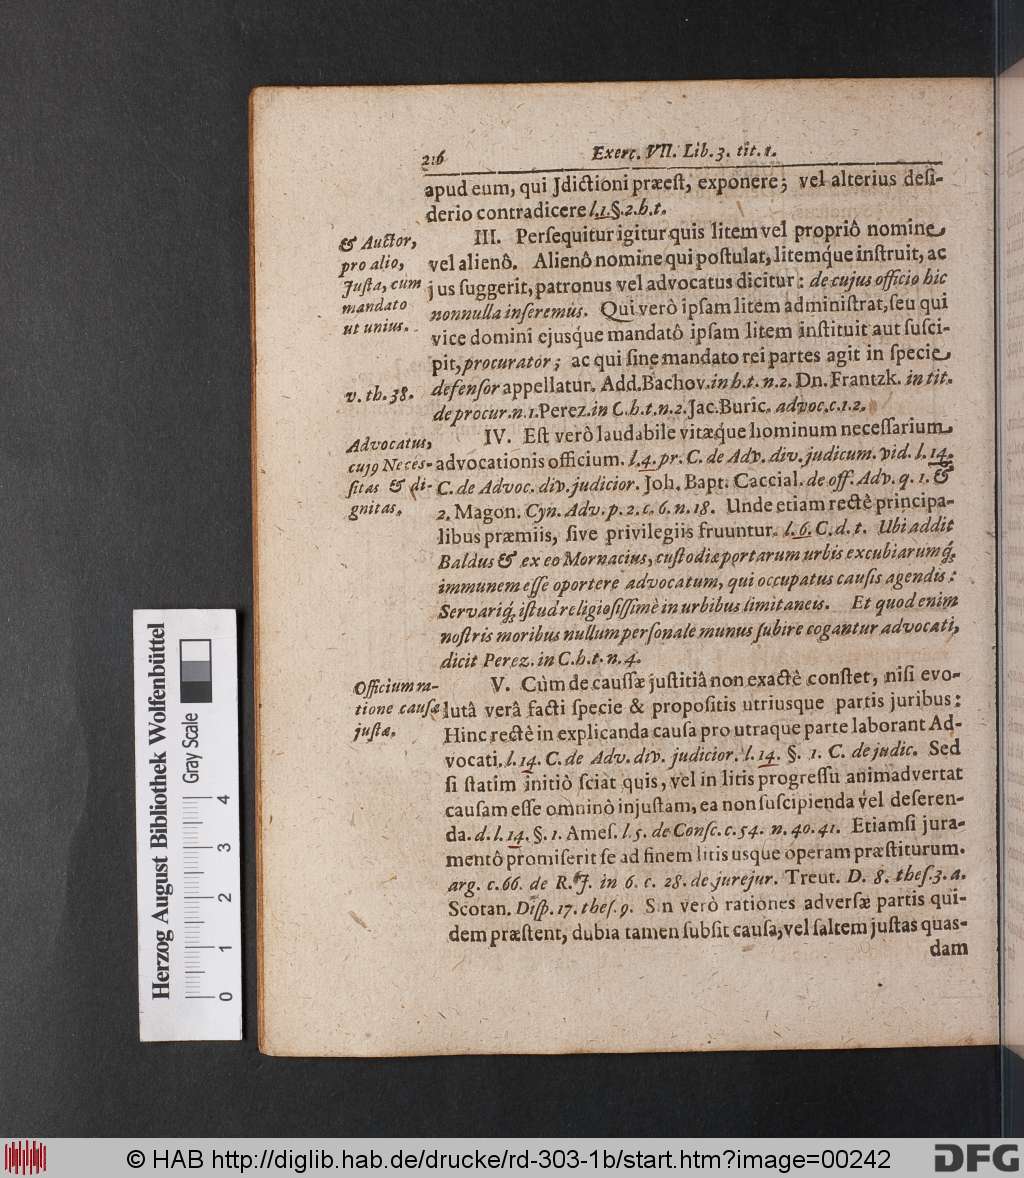 216
Exerc. VII. Lib. 3. tit. 1.
apud eum, qui Jdictioni præest, exponere; vel alterius desi-
derio contradicere l.1.§.2.h.t.
& Auctor,
pro alio,
Justa, cum
mandato
ut unius.
III. Persequitur igitur quis litem vel propriô nomine
vel alienô. Alienô nomine qui postulat, litemq́ue instruit, ac
jus suggerit, patronus vel advocatus dicitur: de cujus officio hic
nonnulla inseremus. Qui verò ipsam litem administrat, seu qui
vice domini ejusq́ue mandatô ipsam litem instituit aut susci-
pit, procurator; ac qui sine mandato rei partes agit in specie
v. th. 38.
defensor appellatur. Add. Bachov. in h.t. n.2. Dn. Frantzk. in tit.
de procur. n.1. Perez. in C.h.t.n.2. Jac. Buric. advoc. c.1.2.
Advocatus,
cujꝯ Neces-
sitas & di-
gnitas.
IV. Est verò laudabile vitæq́ue hominum necessarium
advocationis officium. l.4. pr. C. de Adv. div. judicum. vid. l. 14.
C. de Advoc. div. judicior. Joh. Bapt. Caccial. de off. Adv. q. 1. &
2. Magon. Cyn. Adv. p. 2. c. 6. n. 18. Unde etiam rectè principa-
libus præmiis, sive privilegiis fruuntur. l. 6. C. d. t. Ubi addit
Baldus & ex eo Mornacius, custodiæ portarum urbis excubiarumq́;
immunem esse oportere advocatum, qui occupatus causis agendis:
Servariq́; istud religiosissimè in urbibus limitaneis. Et quod enim
nostris moribus nullum personale munus subire cogantur advocati,
dicit Perez. in C.h.t. n. 4.
Officium ra-
tione causæ
justæ.
V. Cùm de caussæ justitiâ non exactè constet, nisi evo-
lutâ verâ facti specie & propositis utriusque partis juribus:
Hinc rectè in explicanda causa pro utraque parte laborant Ad-
vocati. l. 14. C. de Adv. div. judicior. l. 14. §. 1. C. de judic. Sed
si statim initiò sciat quis, vel in litis progressu animadvertat
causam esse omninò injustam, ea non suscipienda vel deseren-
da. d. l. 14. §. 1. Ames. l. 5. de Consc. c. 54. n. 40. 41. Etiamsi jura-
mentô promiserit se ad finem litis usque operam præstiturum.
arg. c. 66. de R. J. in 6. c. 28. de jurejur. Treut. D. 8. thes. 3. a.
Scotan. Disp. 17. thes. 9. Sin verò rationes adversæ partis qui-
dem præstent, dubia tamen subsit causa, vel saltem justas quas-
dam
Herzog August Bibliothek Wolfenbüttel
Gray Scale
0 1 2 3 4
© HAB http://diglib.hab.de/drucke/rd-303-1b/start.htm?image=00242
DFG